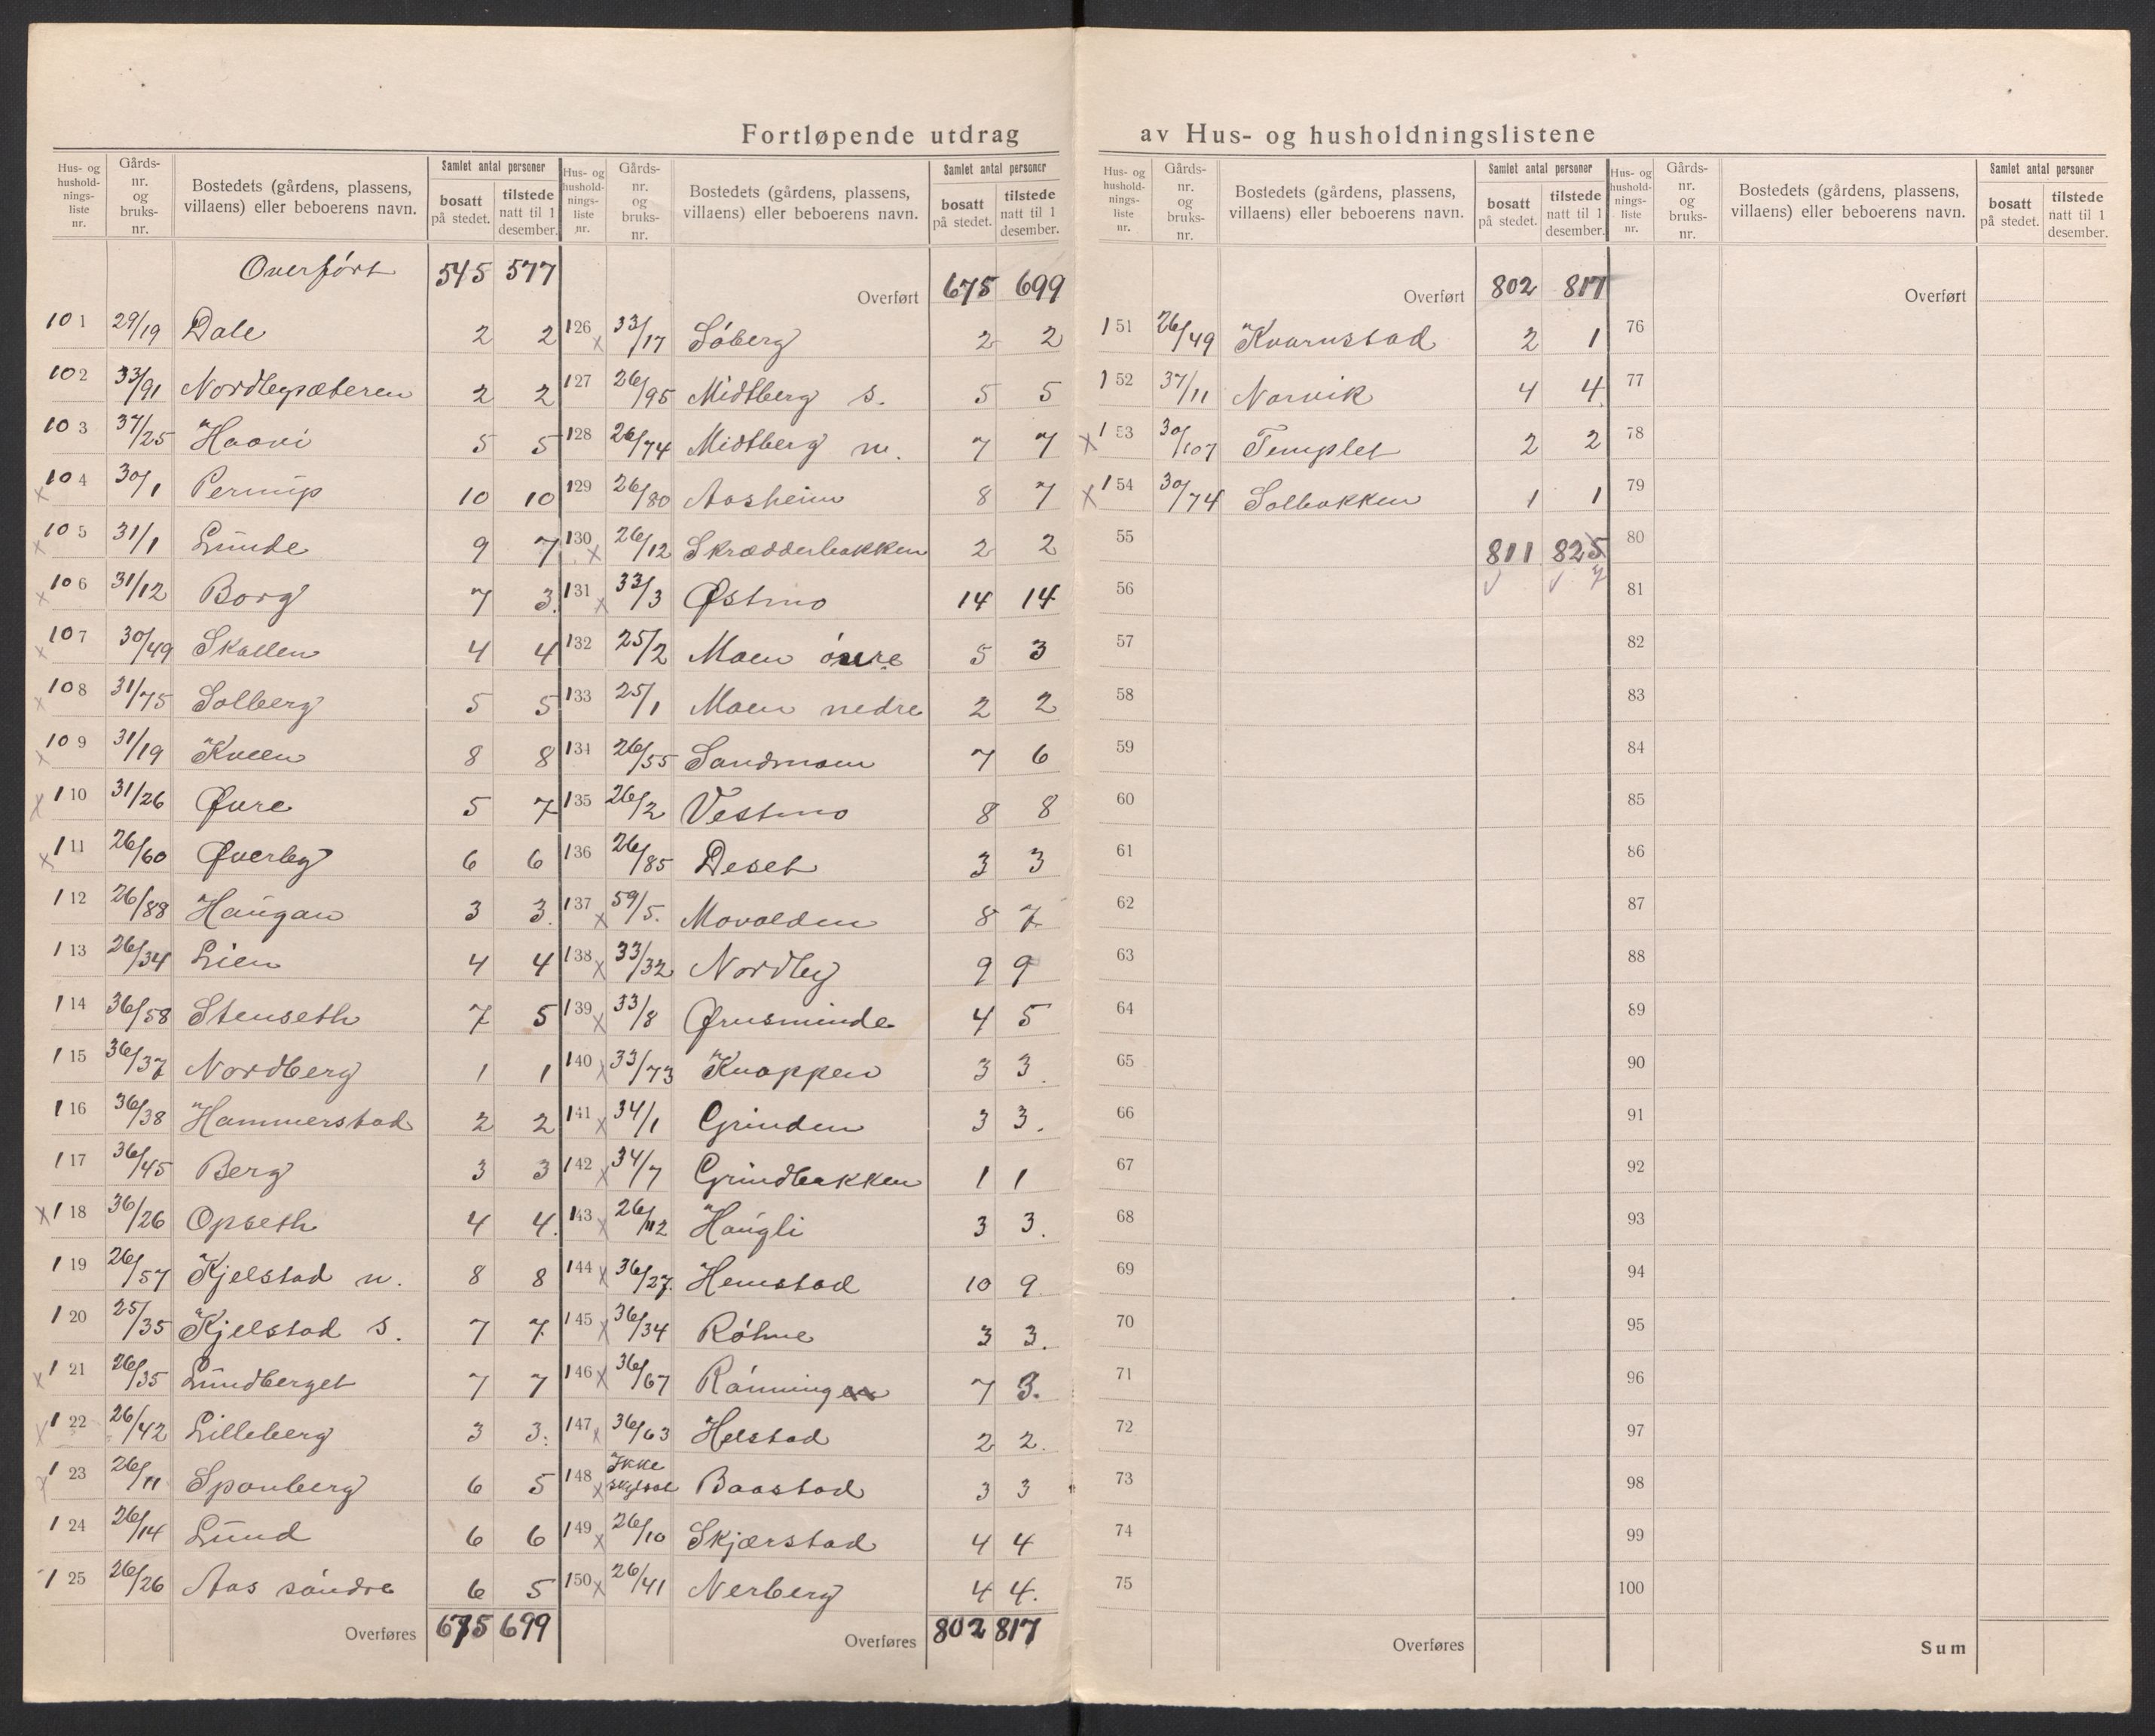 Fortløpende utdrag av Hus- og husholdningslistene
Hus- og hushold-nings-liste nr. Gårds-nr. og bruks-nr. Bostedets (gårdens, plassens, villaens) eller beboerens navn. Samlet antal personer bosatt på stedet. tilstede natt til 1 desember.
Overført 545 577
101 29/19 Dale 2 2
102 33/91 Nordbysæteren 2 2
103 37/25 Haavi 5 5
x 104 30/1 Perrup 10 10
x 105 31/1 Lunde 9 7
x 106 31/12 Borg 7 3.
x 107 30/49 Skallen 4 4
x 108 31/75 Solberg 5 5
x 109 31/19 Kveen 8 8
x 110 31/26 Øvre 5 7
x 111 26/60 Øverby 6 6
112 26/88 Haugan 3 3.
113 26/34 Lien 4 4
114 36/58 Stenseth 7 5
115 36/37 Nordberg 1 1
116 36/38 Hammerstad 2 2
117 36/45 Berg 3 3
x 118 36/26 Opseth 4 4.
119 26/57 Kjelstad n. 8 8
120 25/35 Kjelstad s. 7 7
x 121 26/35 Lundberget 7 7
x 122 26/42 Lilleberg 3 3.
x 123 26/11 Sponberg 6 5
124 26/14 Lund 6 6
125 26/26 Aas søndre 6 5
Overføres 675 699
Hus- og hushold-nings-liste nr. Gårds-nr. og bruks-nr. Bostedets (gårdens, plassens, villaens) eller beboerens navn. Samlet antal personer bosatt på stedet. tilstede natt til 1 desember.
Overført 675 699
126 x 33/17 Søberg 2 2
127 26/95 Midtberg s. 5 5
128 26/74 Midtberg n. 7 7
129 26/80 Aasheim 8 7
130 x 26/12 Skrædderbakken 2 2
131 x 33/3 Østmo 14 14
132 25/2 Moen øvre 5 3
133 25/1 Moen nedre 2 2
134 26/55 Sandmoen 7 6
135 26/2 Vestmo 8 8
136 26/85 Deset 3 3
137 x 59/5. Movolden 8 7
138 x 33/32 Nordby 9 9
139 x 33/8 Ørnsminde 4 5
140 x 33/73 Knappen 3 3.
141 x 34/1 Grinden 3 3.
142 x 34/7 Grindbakken 1 1
143 x 26/112 Haugli 3 3.
144 x 36/27. Hemstad 10 9.
145 x 36/34 Røhne 3 3.
146 x 36/67 Rønningen 7 3.
147 x 36/63 Helstad 2 2.
148 x Ikke skyldsat Baastad 3 3
149 x 26/10 Skjærstad 4 4
150 x 26/41 Nerberg 4 4.
Overføres 802 817
Hus- og hushold-nings-liste nr. Gårds-nr. og bruks-nr. Bostedets (gårdens, plassens, villaens) eller beboerens navn. Samlet antal personer bosatt på stedet. tilstede natt til 1 desember.
Overført 802 817
151 26/49 Kvarnstad 2 1
152 37/11 Narvik 4 4
x 153 30/107 Templet 2 2
x 154 30/74 Solbakken 1 1
55 811 825
56
57
58
59
60
61
62
63
64
65
66
67
68
69
70
71
72
73
74
75
Overføres
Hus- og hushold-nings-liste nr. Gårds-nr. og bruks-nr. Bostedets (gårdens, plassens, villaens) eller beboerens navn. Samlet antal personer bosatt på stedet. tilstede natt til 1 desember.
Overført
76
77
78
79
80
81
82
83
84
85
86
87
88
89
90
91
92
93
94
95
96
97
98
99
100
Sum